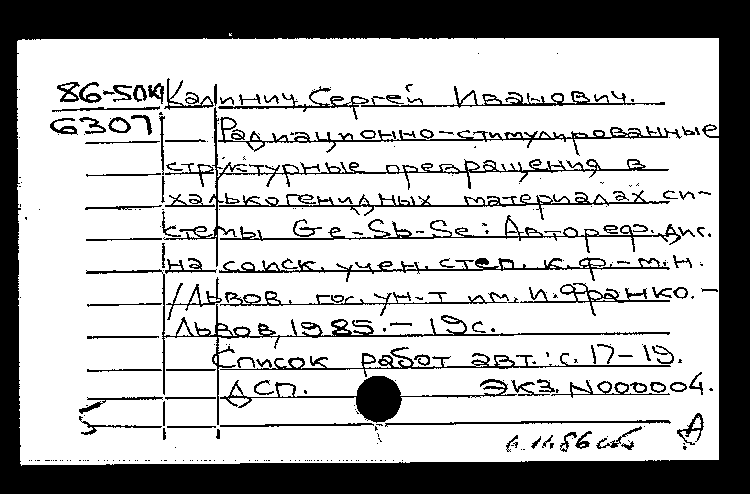 86-5ДК Калинич, Сергей Иванович.
6307 Радиационно-стимулированные
структурные превращения в
халькогенидных материалах си-
стемы Ge-Sb-Se: Автореф. дис.
на соиск. учен. степ. к.ф.-м.н.
/Львов. гос. ун-т им. И. Франко.-
Львов, 1985.- 19с.
Список работ авт.: с. 17-19.
ДСП. ЭКЗ. N000004.
5 А